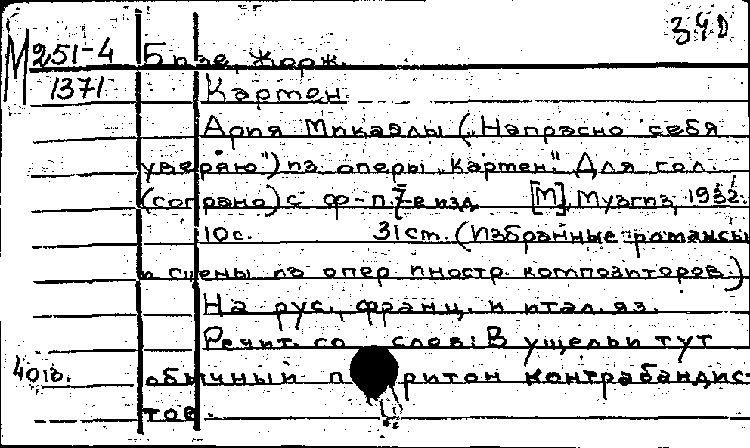 340
М 251-4 Бизе, Жорж.
1371 Кармен
Ария Микаэлы („Напрасно себя
уверяю") из оперы „Кармен". Для гол.
(сопрано) с ф-п. 7-е изд. [М], Музгиз, 1932.
10 с. 31 см. (Избранные романсы
и сцены из опер иностр. композиторов.)
На рус., франц. и итал. яз.
Речит. со слов: В ущельи тут
401в. обычный п ритон контрабандис-
тов.